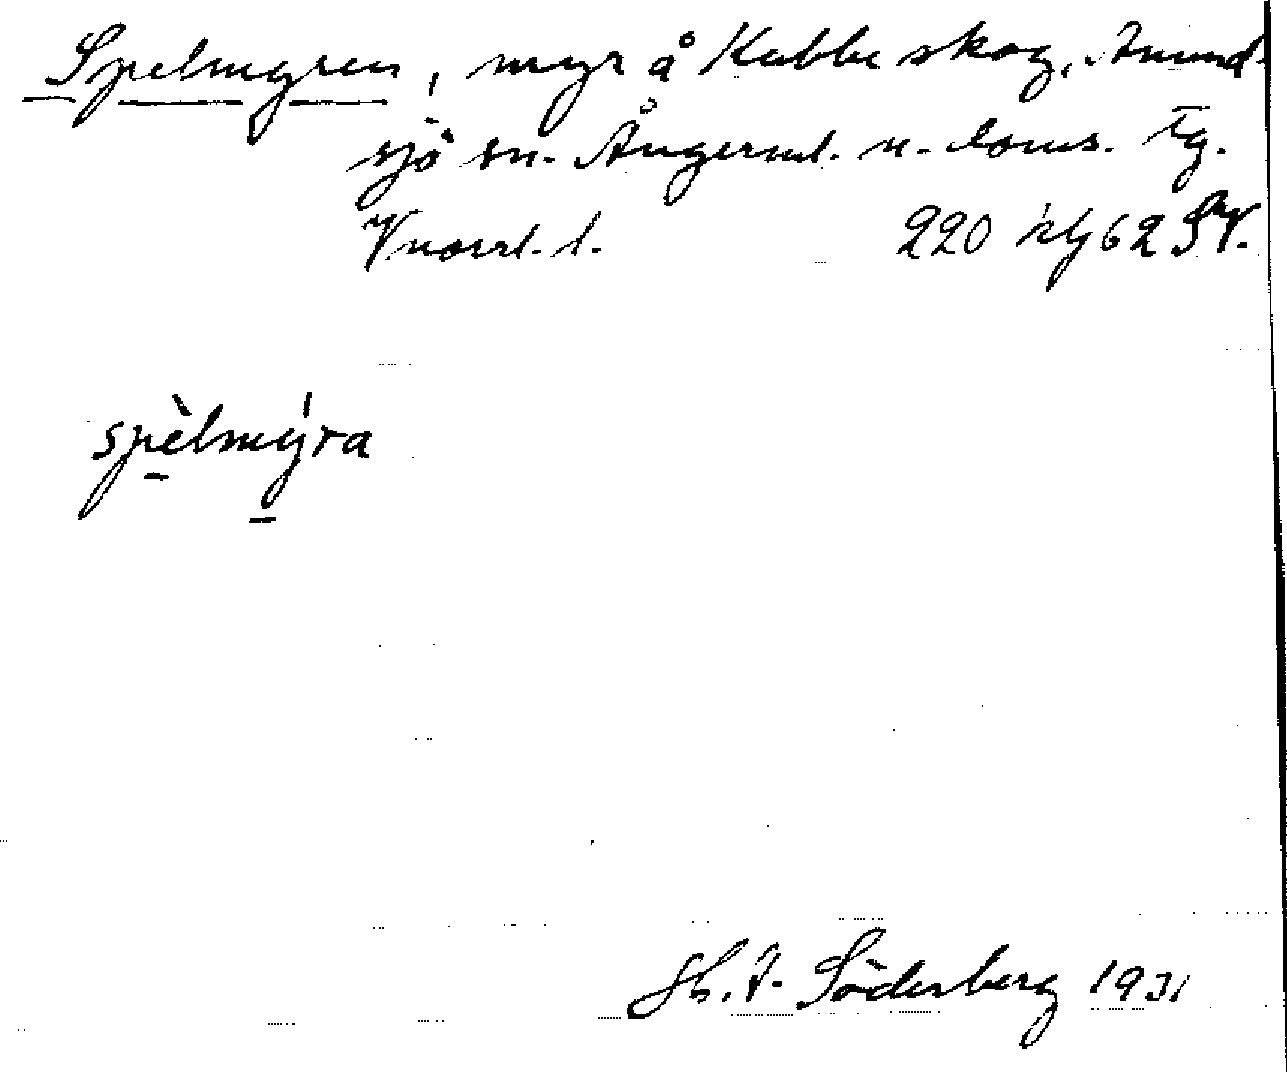 Spelmyren, myr å Kubbe skog, Anund-
sjö sn. Ångerml. n. doms. Tg.
Vnorrl. l. 220 klj 62 SV.
spèlmýra
Hh. A. Söderberg 1931